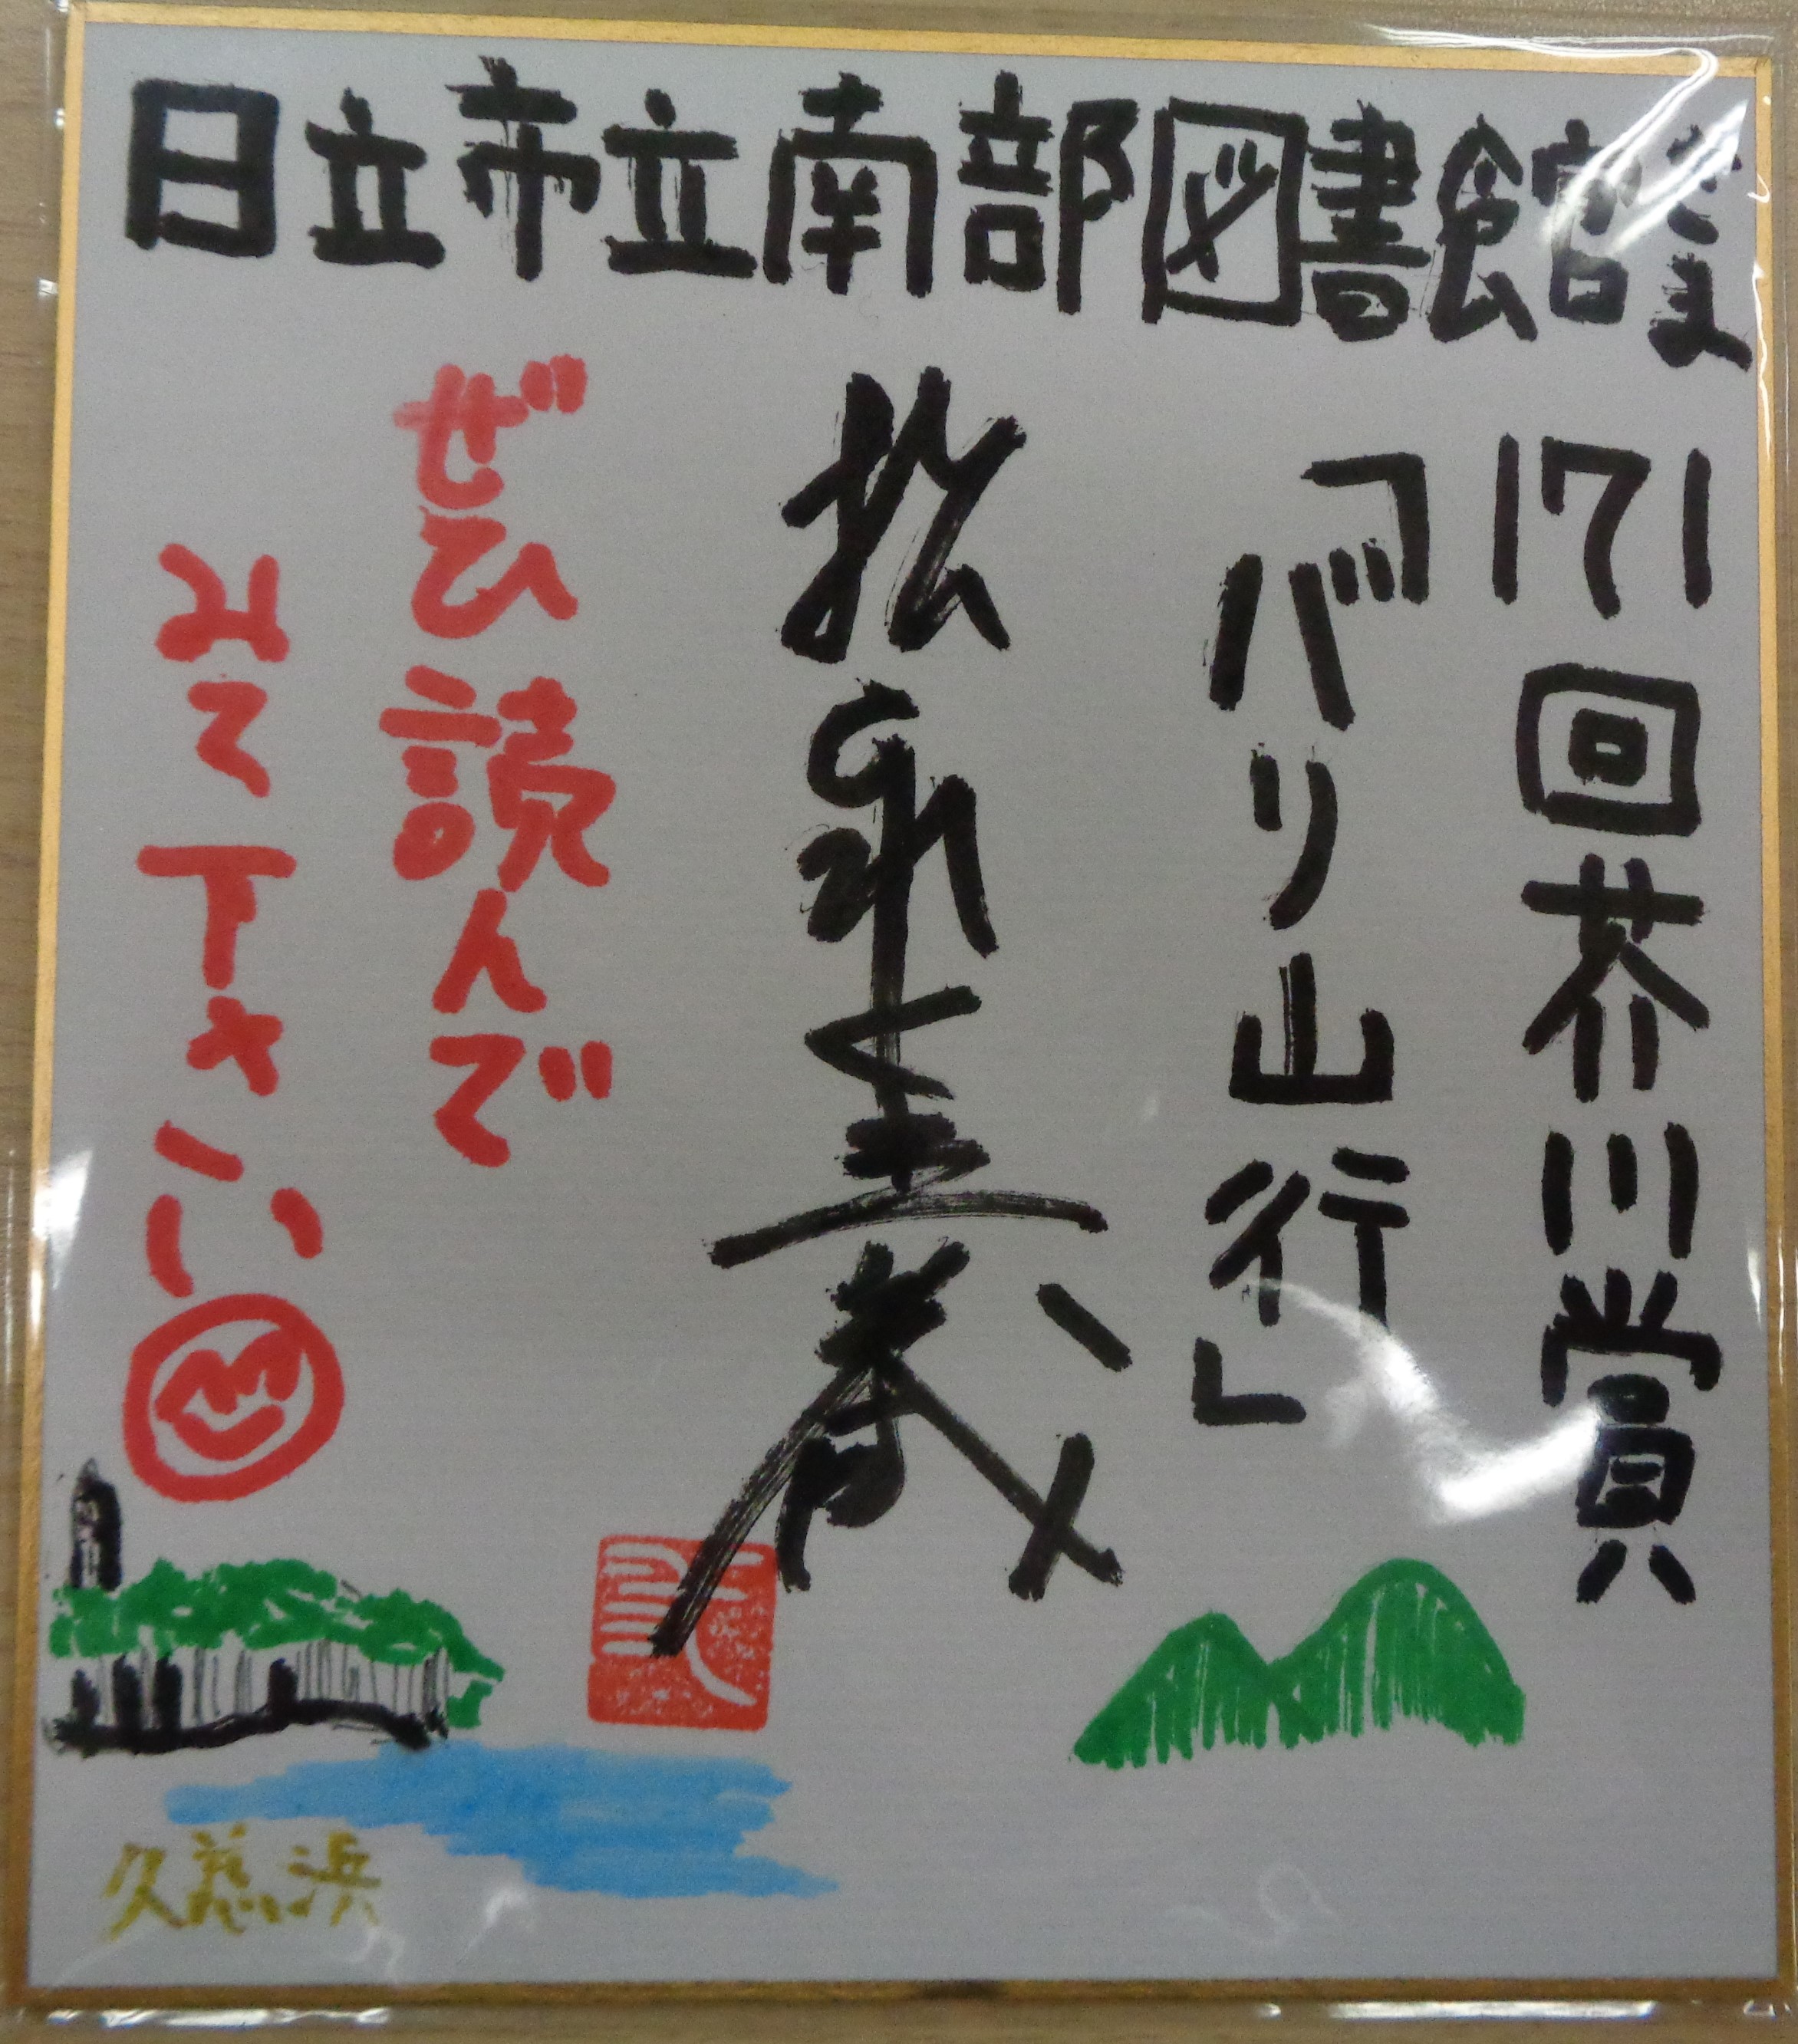 日立市立南部図書館さま
171回芥川賞
「バリ山行」
松永K三蔵
ぜひ読んで
みて下さい
久慈浜